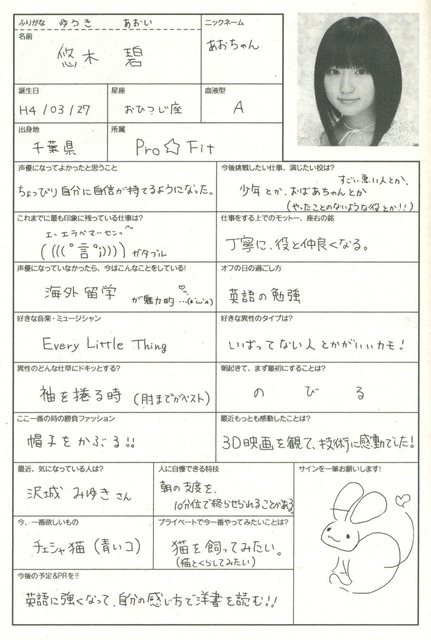 ふりがな ゆうき あおい
ニックネーム
名前
悠木 碧
あおちゃん
誕生日
星座
血液型
H4/03/27
おひつじ座
A
出身地
所属
千葉県
Pro☆Fit
声優になってよかったと思うこと
ちょっぴり自分に自信が持てるようになった。
今後挑戦したい仕事、演じたい役は?
すごい悪い人とか、
少年とか、おばあちゃんとか
(やったことのないような役とか!!)
これまでに最も印象に残っている仕事は?
エ、エラベマセンッ
(((( °言°i)))) ガタブル
仕事をする上でのモットー、座右の銘
丁寧に、役と仲良くなる。
声優になっていなかったら、今はこんなことをしている!
海外留学 が魅力的…(*'ω'*)
オフの日の過ごし方
英語の勉強
好きな音楽・ミュージシャン
Every Little Thing
好きな異性のタイプは?
いばってない人とかがいいカモ!
異性のどんな仕草にドキッとする?
袖を捲る時(肘までがベスト)
朝起きて、まず最初にすることは?
のびる
ここ一番の時の勝負ファッション
帽子をかぶる!!
最近もっとも感動したことは?
3D映画を観て、技術に感動でした!
最近、気になっている人は?
沢城 みゆき さん
人に自慢できる特技
朝の支度を、
10分位で終らせられることがある
サインを一筆お願いします!
今、一番欲しいもの
チェシャ猫(青いコ)
プライベートで今一番やってみたいことは?
猫を飼ってみたい。
(猫とくらしてみたい)
今後の予定&PRを!!
英語に強くなって、自分の感じ方で洋書を読む!!